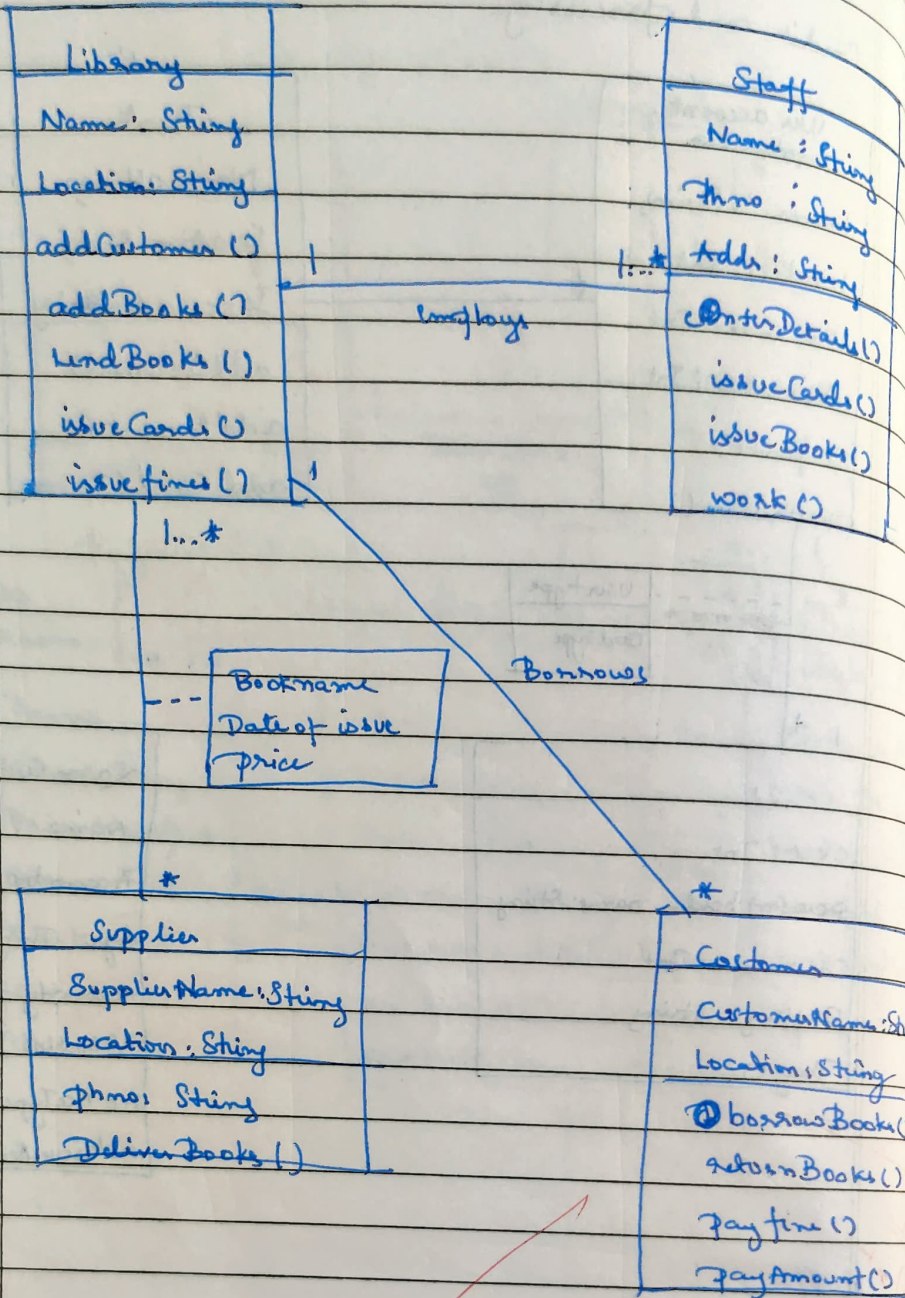 Library
Name: String
Location: String
addCustomer ()
addBooks ()
LendBooks ()
issueCards ()
issuefines ()
Staff
Name : String
Phno : String
Adds : String
enterDetails()
issueCards()
issueBooks()
work ()
1
1...*
employs
1
1...*
Borrows
Bookname
Date of issue
price
*
*
Supplier
SupplierName: String
Location: String
phno: String
DeliverBooks ()
Customer
CustomerName: St
Location: String
borrowBooks(
returnBooks()
payfine ()
payAmount()